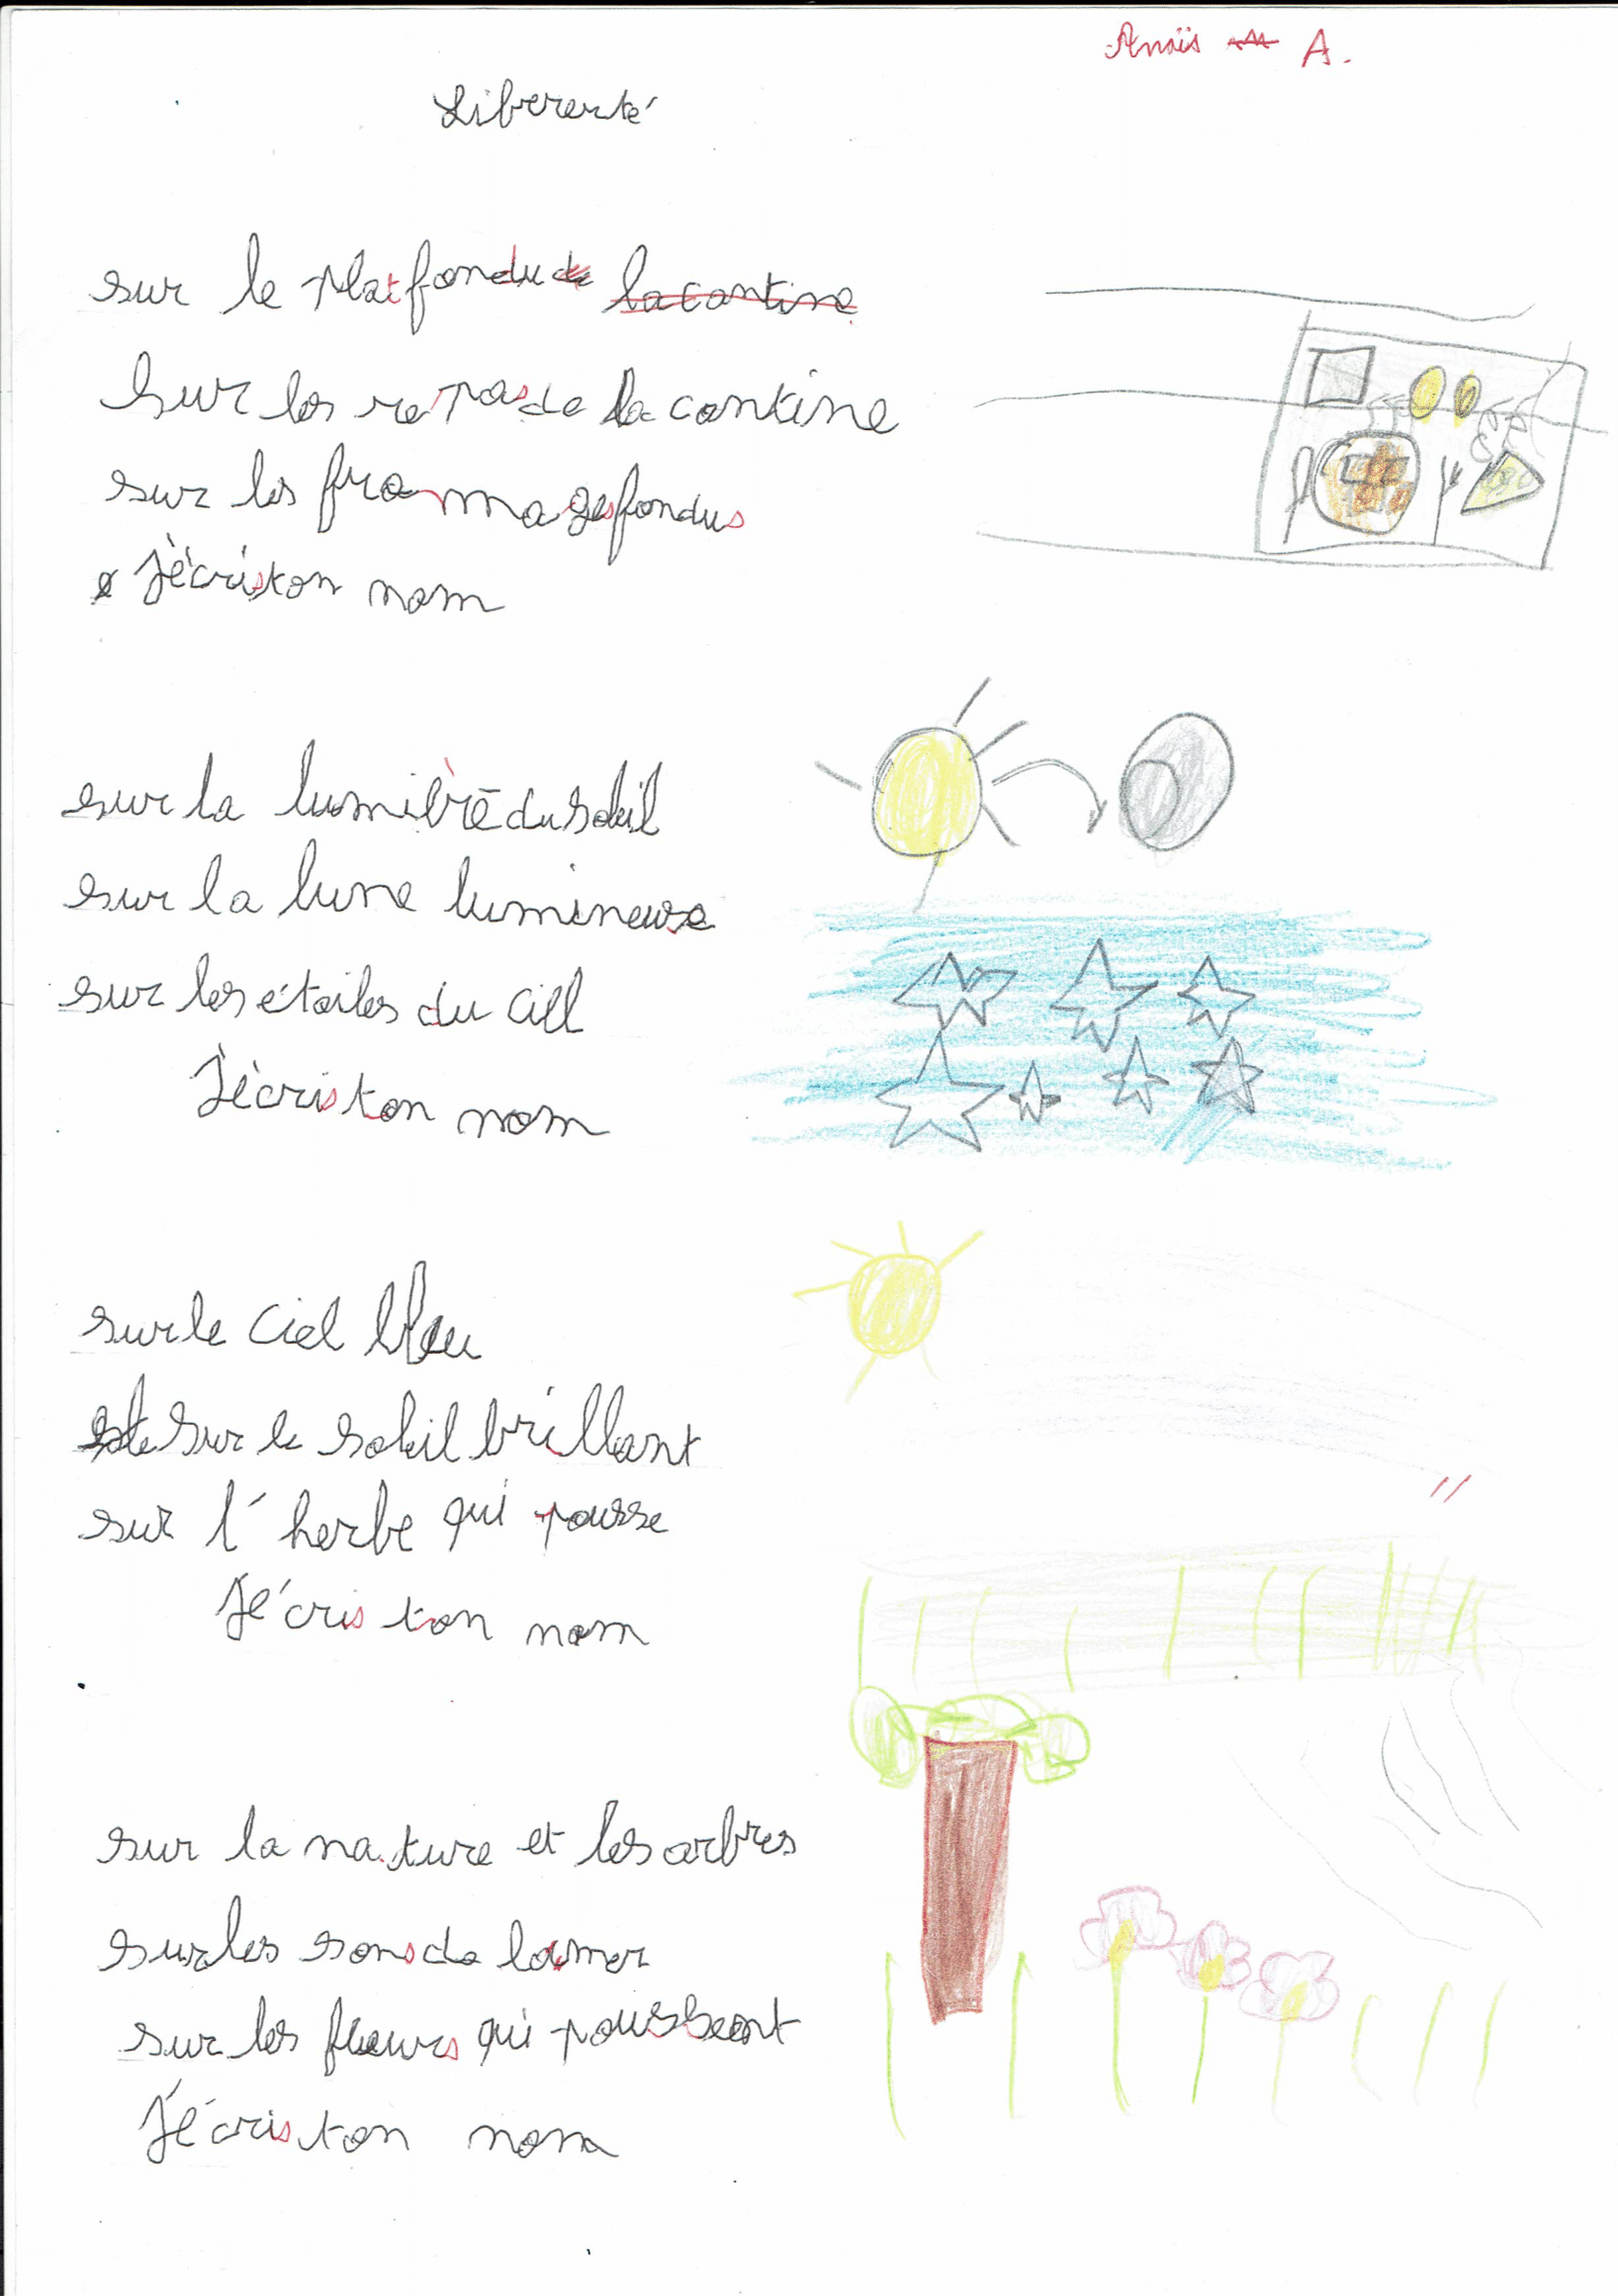 Anaïs A.
Libererté
sur le platfond du de la cantine
sur les repas de la cantine
sur les frommages fondus
J'écris ton nom
sur la lumière du soleil
sur la lune lumineuse
sur les étoiles du ciel
J'écris ton nom
sur le ciel bleu
sur le soleil brillant
sur l'herbe qui pousse
J'écris ton nom
sur la nature et les arbres
sur les sons de la mer
sur les fleurs qui poussent
J'écris ton nom